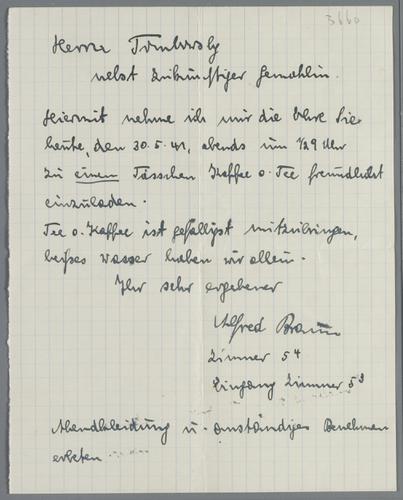 3660
Herrn Tombrosky
nebst zukünftiger Gemahlin.
Hiermit nehme ich mir die Ehre Sie
heute, den 30.5.41, abends um 1/29 Uhr
zu einem Tässchen Kaffee o. Tee freundlichst
einzuladen.
Tee o. Kaffee ist gefälligst mitzubringen,
heißes Wasser haben wir allein.
Ihr sehr ergebener
Alfred Braun
Zimmer 54
Eingang Zimmer 53
Abendkleidung u. anständiges Benehmen
erbeten ......